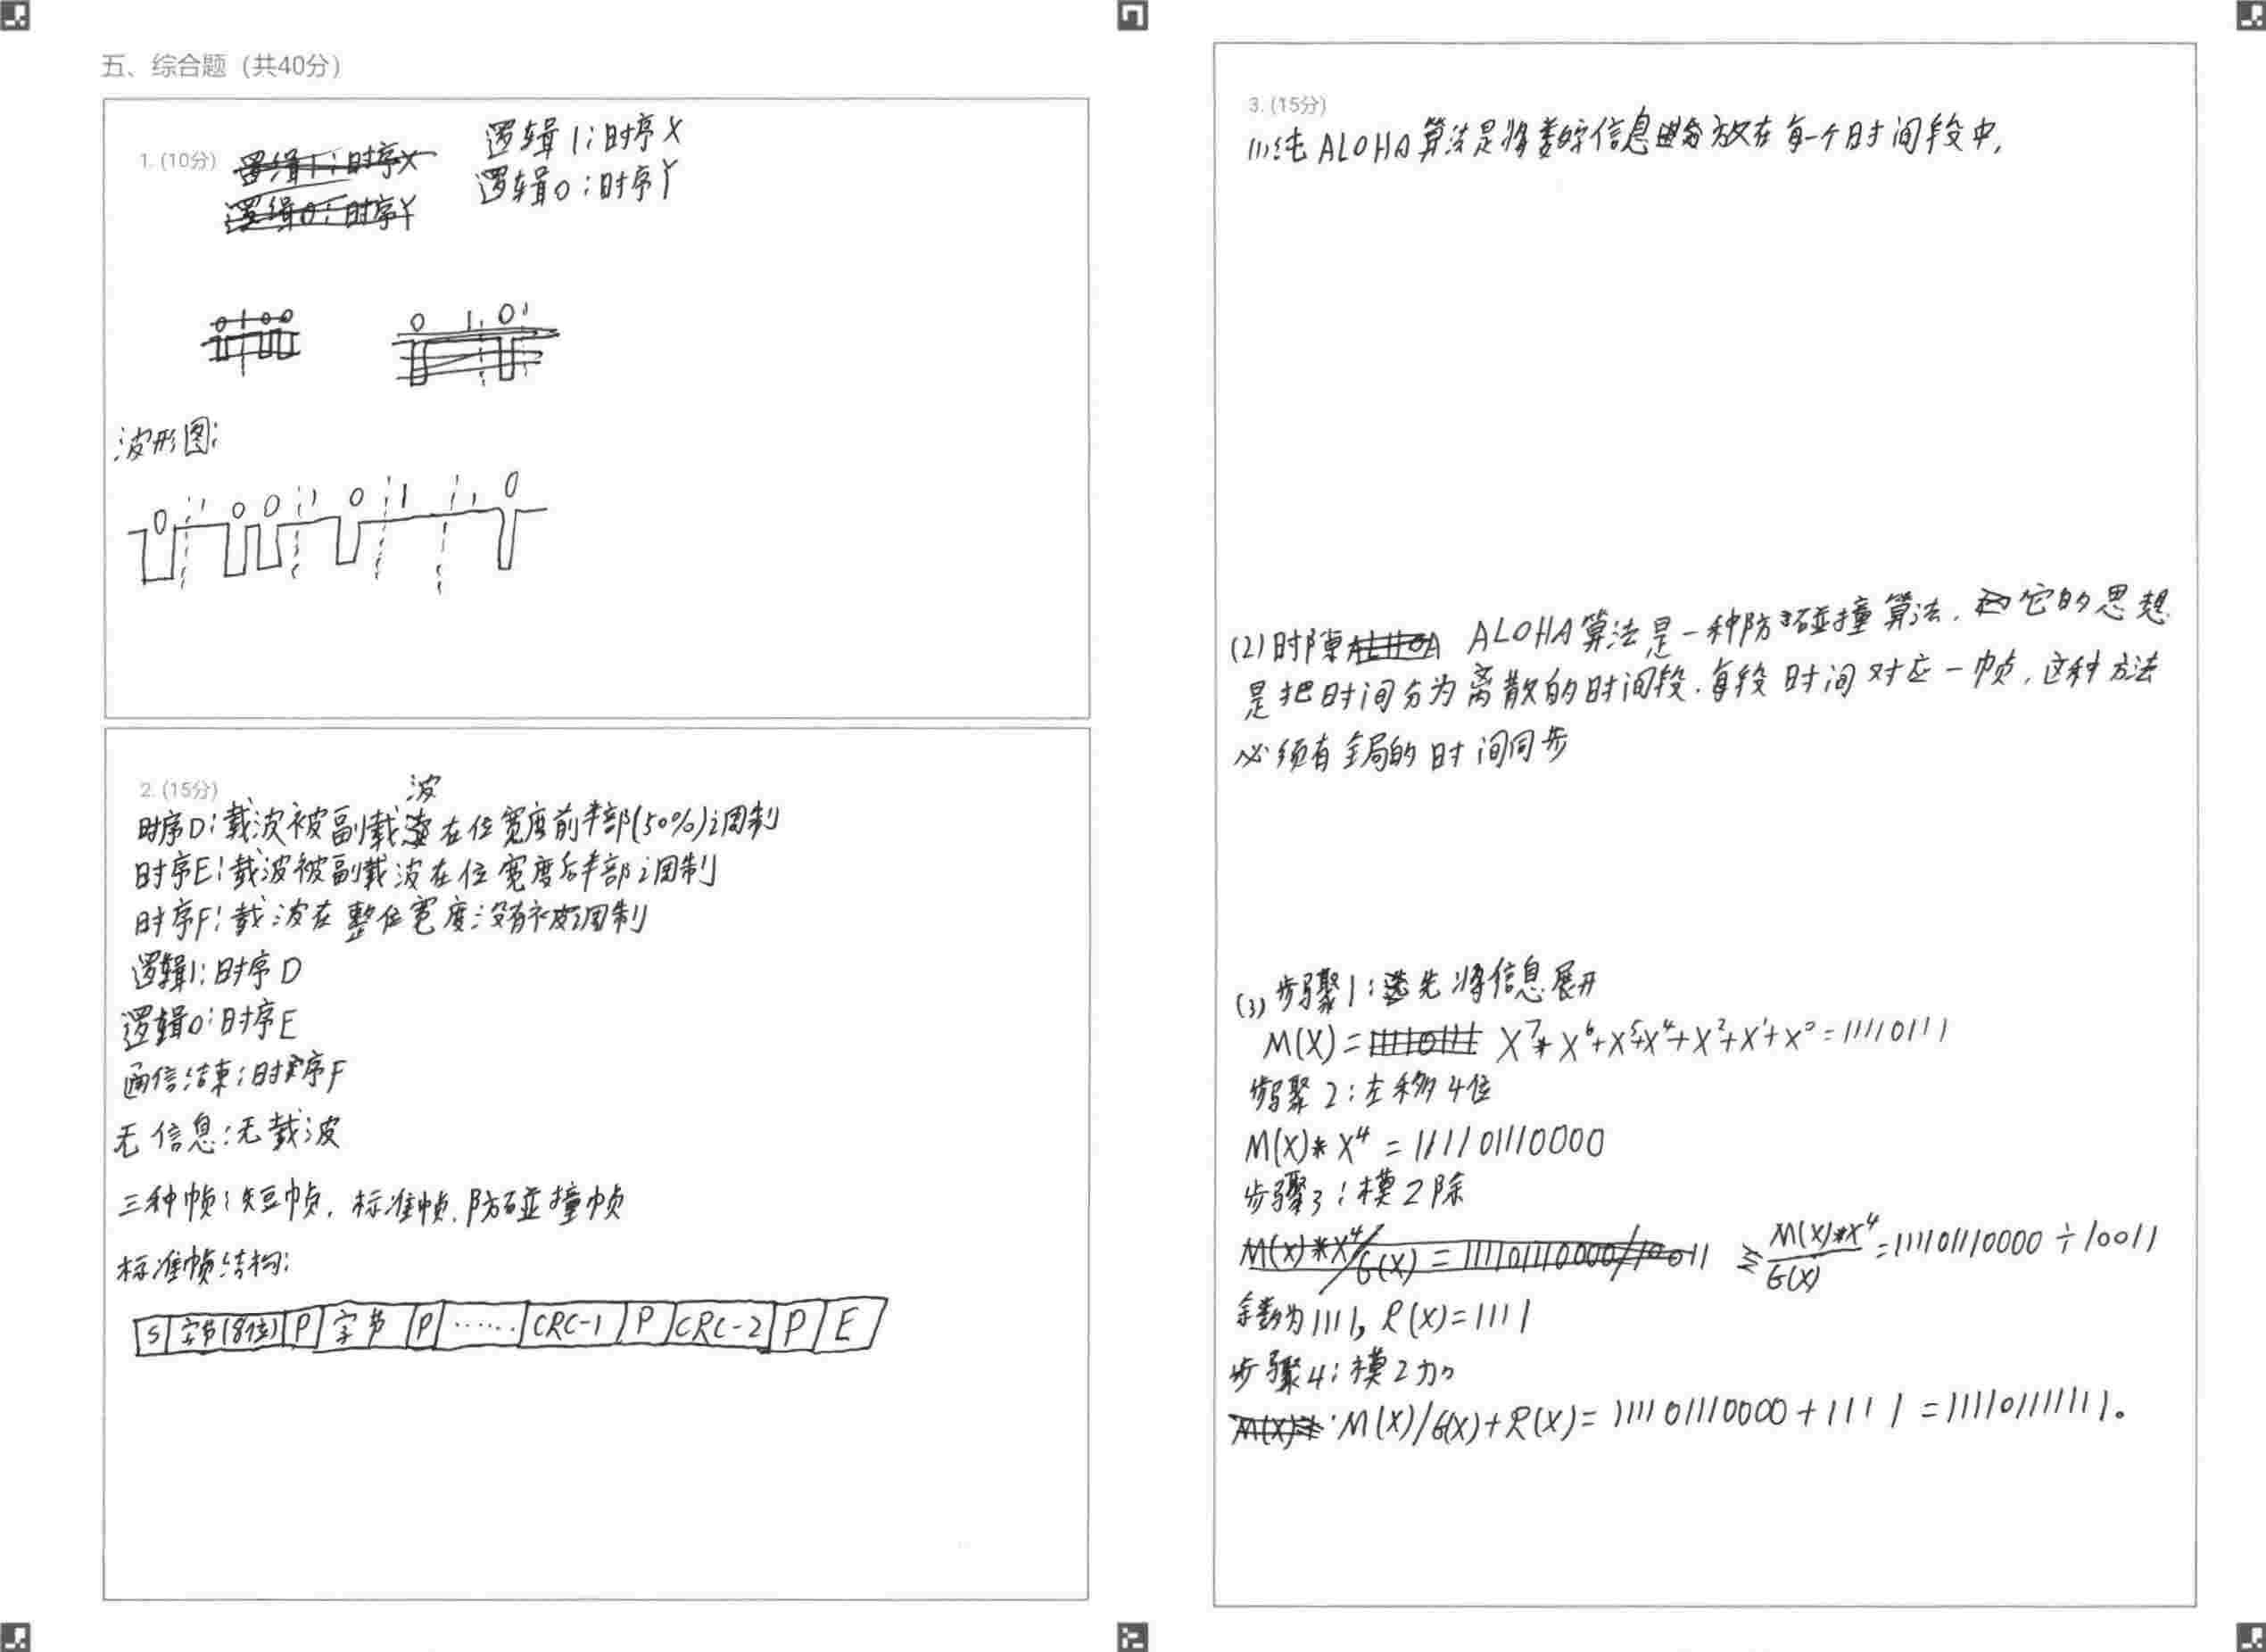 五、综合题（共40分）
1. (10分)
逻辑1：时序X
逻辑0：时序Y
逻辑1：时序X
逻辑0：时序Y
0 1 0 0
0 1 0 1
波形图：
0 1 0 0 1 0 1 1 0
2. (15分)
时序D：载波被副载波在位宽度前半部(50%)调制
时序E：载波被副载波在位宽度后半部调制
时序F：载波在整位宽度没有被调制
逻辑1：时序D
逻辑0：时序E
通信结束：时序F
无信息：无载波
三种帧：短帧，标准帧，防碰撞帧
标准帧结构：
S 字节(8位) P 字节 P …… CRC-1 P CRC-2 P E
3. (15分)
(1)纯ALOHA算法是将信息放在每一个时间段中，
(2)时隙ALOHA算法是一种防碰撞算法，它的思想
是把时间分为离散的时间段，每段时间对应一帧，这种方法
必须有全局的时间同步
(3)步骤1：先将信息展开
M(X)=11110111 X⁷+X⁶+X⁵+X⁴+X²+X¹+X⁰=11110111
步骤2：左移4位
M(X)*X⁴=111101110000
步骤3：模2除
M(X)*X⁴/G(X)=111101110000/10011 M(X)*X⁴/G(X)=111101110000÷10011
余数为1111，R(X)=1111
步骤4：模2加
M(X)* M(X)/G(X)+R(X)=111101110000+1111=111101111111。